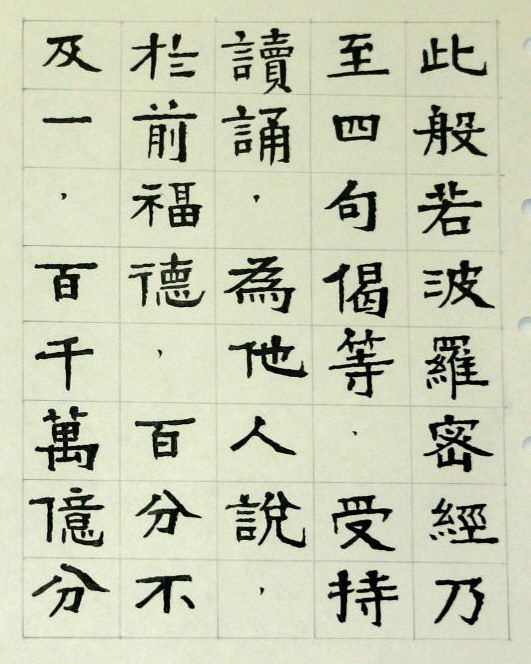 此般若波羅密經乃
至四句偈等，受持
讀誦，為他人說，
於前福德，百分不
及一，百千萬億分